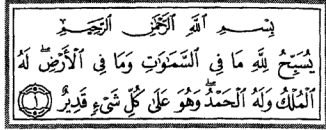 بِسْمِ اللَّهِ الرَّحْمَٰنِ الرَّحِيمِ
يُسَبِّحُ لِلَّهِ مَا فِي السَّمَٰوَٰتِ وَمَا فِي الْأَرْضِ ۖ لَهُ
الْمُلْكُ وَلَهُ الْحَمْدُ ۖ وَهُوَ عَلَىٰ كُلِّ شَيْءٍ قَدِيرٌ ١